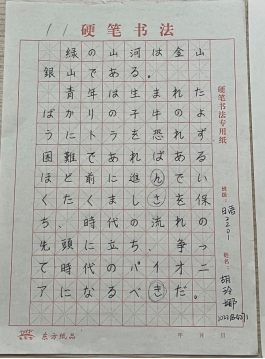 硬笔书法
11
緑の山河は金山
銀山である。
青年は生まれた
ばかりの子牛のよ
うにトラを恐れず
困難であればある
ほど前
くち、時代の流
先頭に立ち、争っ
て時代のパイオニ
アになるべきだ。
硬笔书法专用纸
班级：日语2201
姓名：胡玲娜
东方纸品
年 月 日